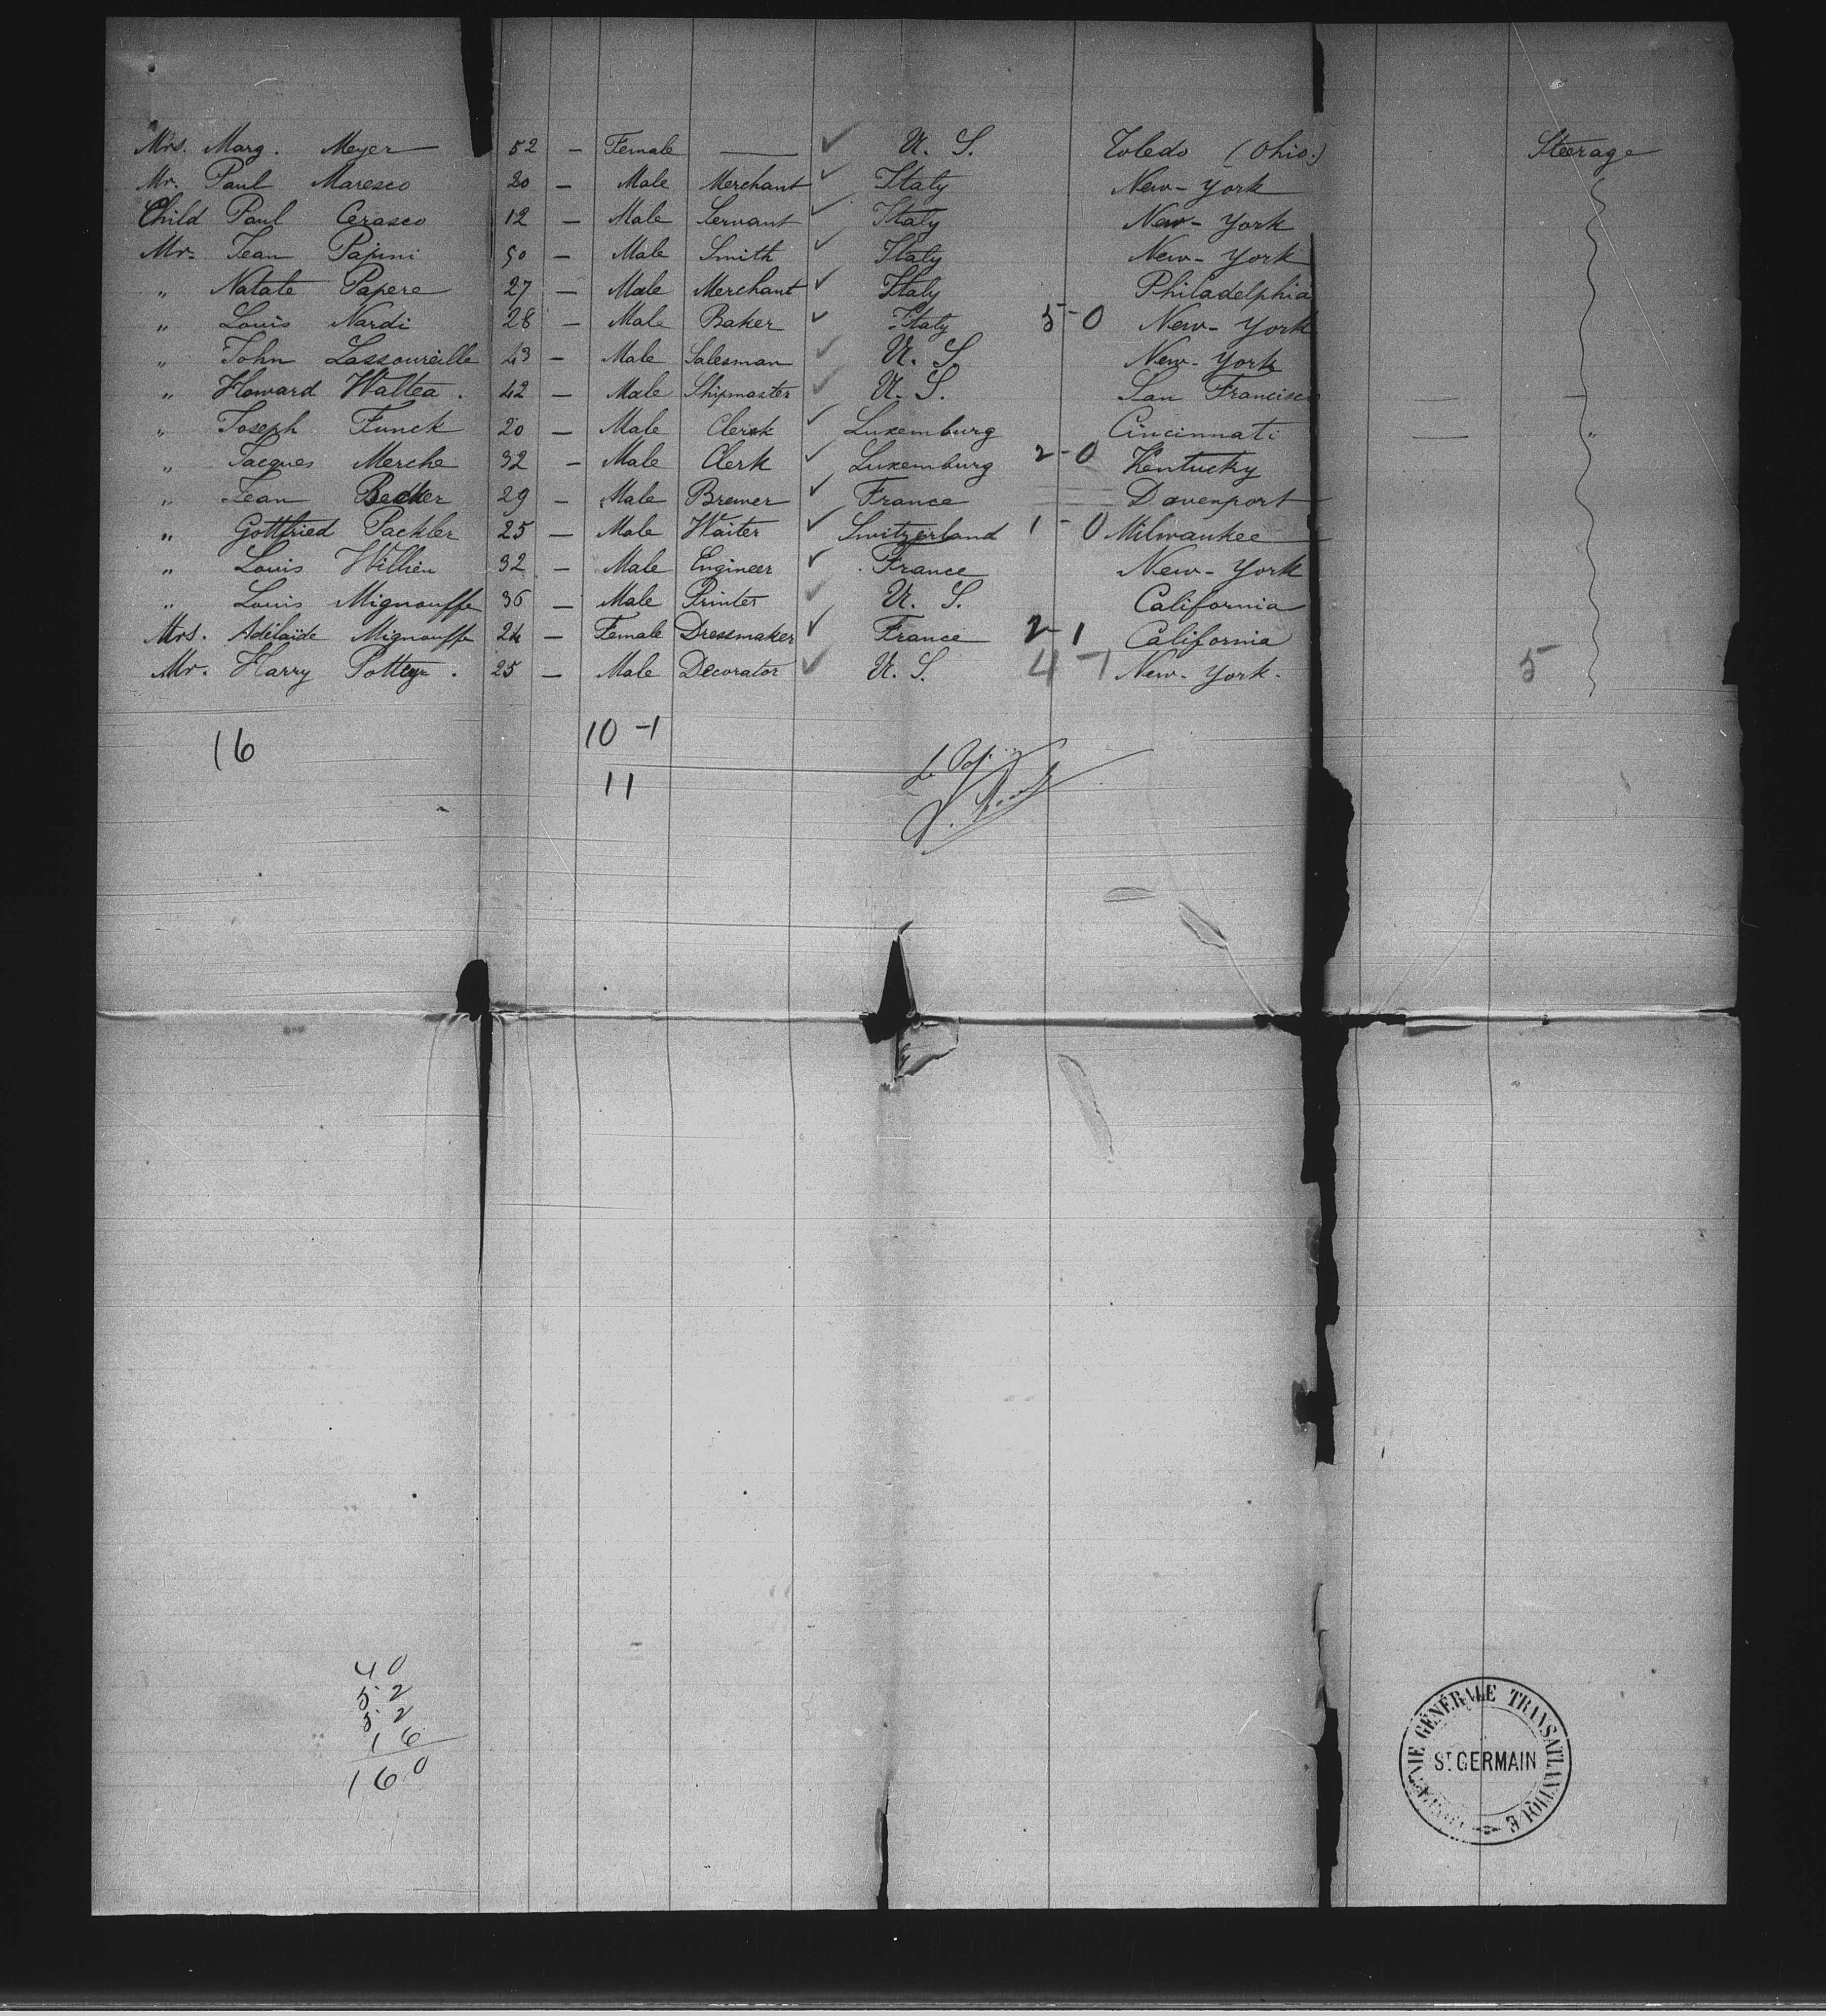 Mrs. Marg. Meyer 52 — Female — ✓ U. S. Toledo (Ohio.) Steerage
Mr. Paul Maresco 20 — Male Merchant ✓ Italy New-York
Child Paul Cerasco 12 — Male Servant ✓ Italy New-York
Mr. Jean Papini 50 — Male Smith ✓ Italy New-York
" Natale Papere 27 — Male Merchant ✓ Italy Philadelphia
" Louis Nardi 28 — Male Baker ✓ Italy 5-0 New-York
" John Lassoureille 43 — Male Salesman ✓ U. S. New-York
" Howard Waltea. 42 — Male Shipmaster ✓ U. S. San Francisco —
" Joseph Funck 20 — Male Clerk ✓ Luxemburg Cincinnati — "
" Jacques Merche 32 — Male Clerk ✓ Luxemburg 2-0 Kentucky
" Jean Becker 29 — Male Brewer ✓ France Davenport
" Gottfried Pachler 25 — Male Waiter ✓ Switzerland 1-0 Milwaukee
" Louis Willien 32 — Male Engineer ✓ France New-York
" Louis Mignouffe 36 — Male Printer ✓ U. S. California
Mrs. Adélaïde Mignouffe 24 — Female Dressmaker ✓ France 2-1 California
Mr. Harry 25 — Male Decorator ✓ U. S. 4-1 New-York. 5
16 10-1
11
40
52
52
16
160
GÉNÉRALE TRANSATLANTIQUE
ST GERMAIN